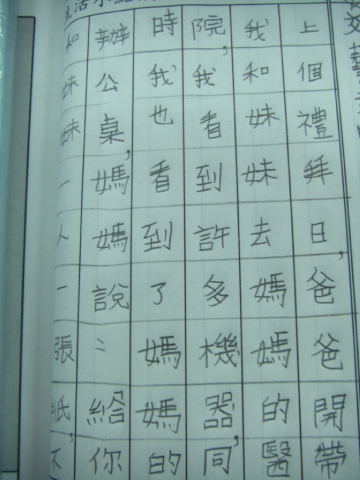 上個禮拜日，爸爸開
我和妹妹去媽媽的醫
院，我看到許多機器，同
時我也看到了媽媽的
辦公桌，媽媽說：給你
和妹妹一人一張紙，不